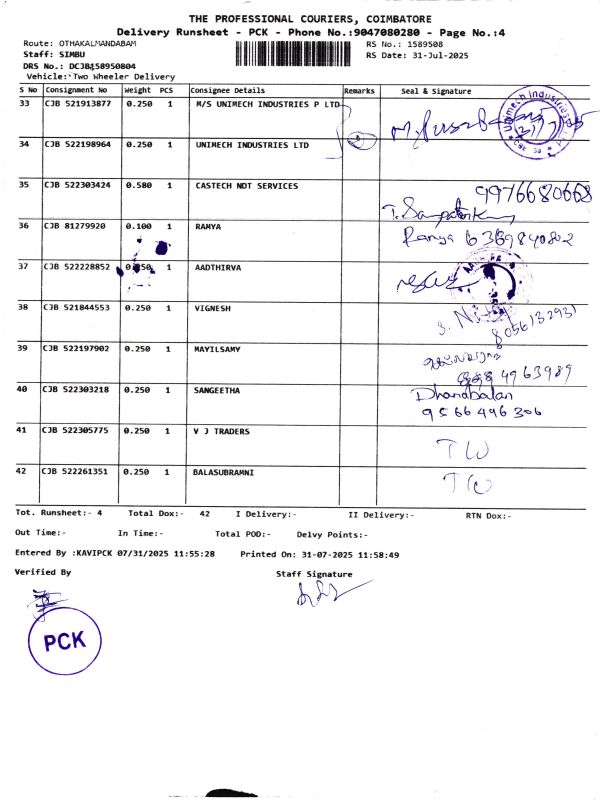 THE PROFESSIONAL COURIERS, COIMBATORE
Delivery Runsheet - PCK - Phone No.:9047080280 - Page No.:4
Route: OTHAKALMANDABAM
RS No.: 1589508
Staff: SIMBU
RS Date: 31-Jul-2025
DRS No.: DCJB158950804
Vehicle: Two Wheeler Delivery
S No Consignment No Weight PCS Consignee Details Remarks Seal & Signature
33 CJB 521913877 0.250 1 M/S UNIMECH INDUSTRIES P LTD
34 CJB 522198964 0.250 1 UNIMECH INDUSTRIES LTD
35 CJB 522303424 0.580 1 CASTECH NDT SERVICES 9976680668
36 CJB 81279920 0.100 1 RAMYA Ramya 6369840802
37 CJB 522228852 0.250 1 AADTHIRVA
38 CJB 521844553 0.250 1 VIGNESH 8056132931
39 CJB 522197902 0.250 1 MAYILSAMY 4963989
40 CJB 522303218 0.250 1 SANGEETHA Dhanabalan
9566496306
41 CJB 522305775 0.250 1 V J TRADERS TW
42 CJB 522261351 0.250 1 BALASUBRAMNI TW
Tot. Runsheet:- 4 Total Dox:- 42 I Delivery:- II Delivery:- RTN Dox:-
Out Time:- In Time:- Total POD:- Delvy Points:-
Entered By :KAVIPCK 07/31/2025 11:55:28 Printed On: 31-07-2025 11:58:49
Verified By Staff Signature
PCK